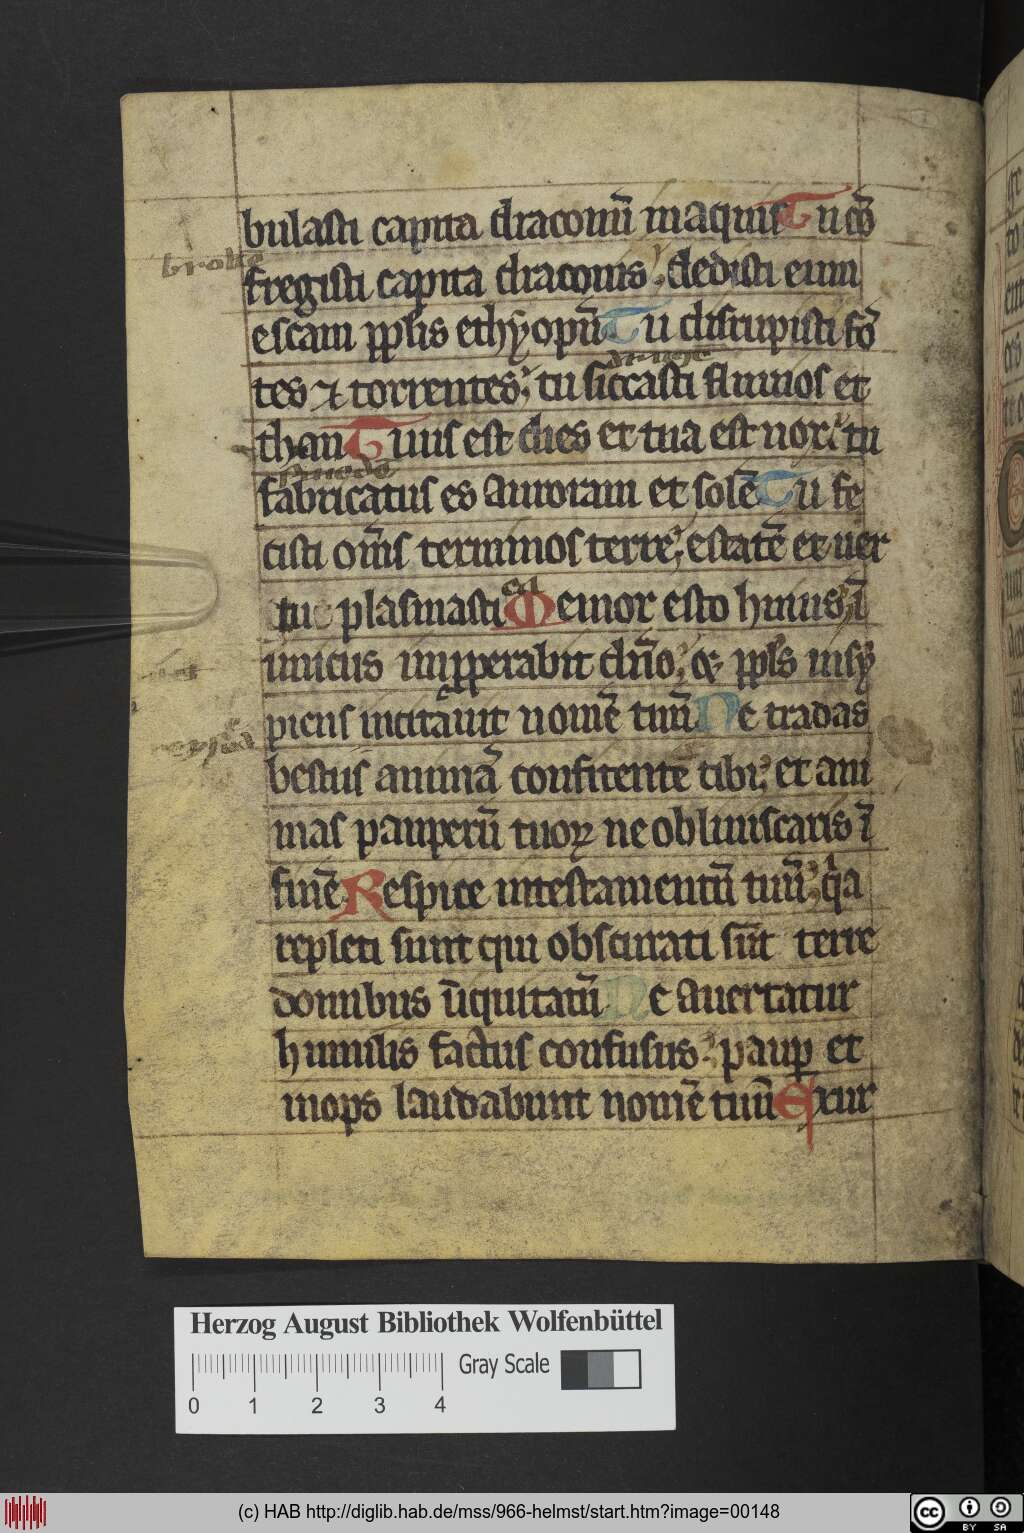 bulasti capita draconū in aquis Tu cō
broke
fregisti capita draconis dedisti eum
escam pplis ethyopū Tu dirupisti fō
tes ⁊ torrentes tu siccasti fluuios et
than Tuus est dies et tua est nox tu
fabricatus es auroram et solē Tu fe
cisti om̄s terminos terre estatē et uer
tu plasmasti Memor esto huius ī
imicus improperabit dn̄o et ppls insy
piens incitauit nomē tuū Ne tradas
bestiis animā confitentē tibi et ani
mas pauperū tuoꝝ ne obliuiscaris ī
finē Respice in testamentū tuū qia
repleti sunt qui obscurati sūt terre
domibus īiquitatū Ne auertatur
humilis factus confusus paup et
inops laudabunt nomē tuū Exur
Herzog August Bibliothek Wolfenbüttel
Gray Scale
0 1 2 3 4
(c) HAB http://diglib.hab.de/mss/966-helmst/start.htm?image=00148
CC BY SA